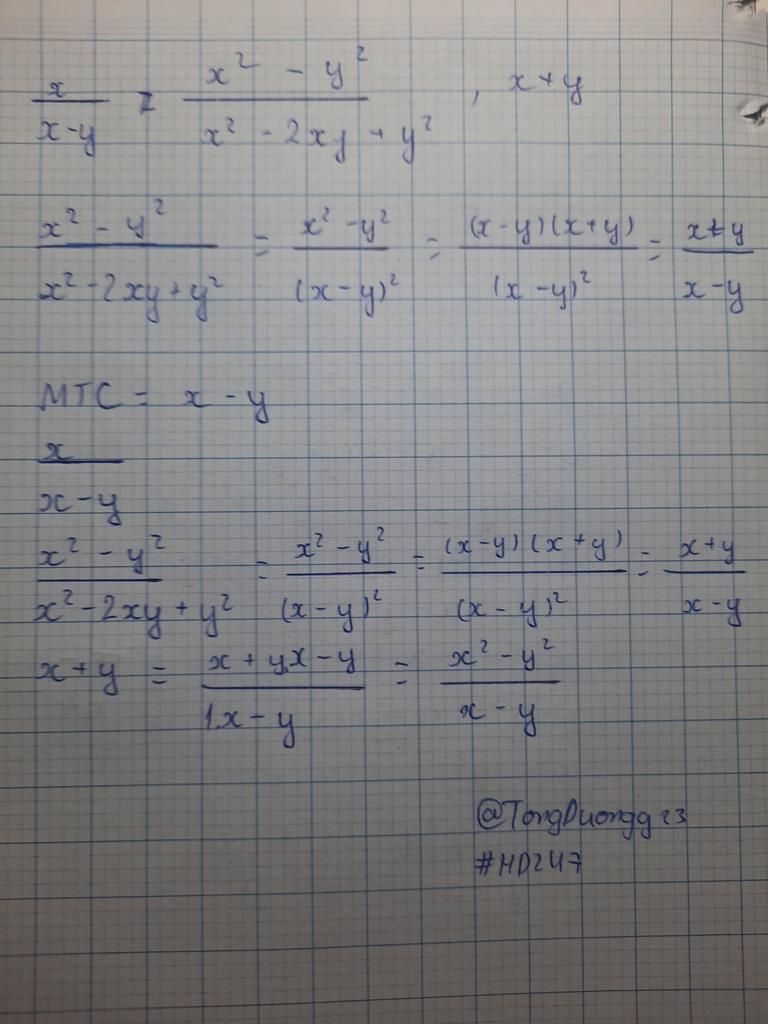 x/(x-y) ; (x² - y²)/(x² - 2xy + y²) , x+y
(x² - y²)/(x² - 2xy + y²) = (x² - y²)/(x - y)² = (x - y)(x + y)/(x - y)² = (x + y)/(x - y)
MTC = x - y
x/(x - y)
(x² - y²)/(x² - 2xy + y²) = (x² - y²)/(x - y)² = (x - y)(x + y)/(x - y)² = (x + y)/(x - y)
x + y = (x + y.x - y)/(1.x - y) = (x² - y²)/(x - y)
@TongDuongg23
#HD247